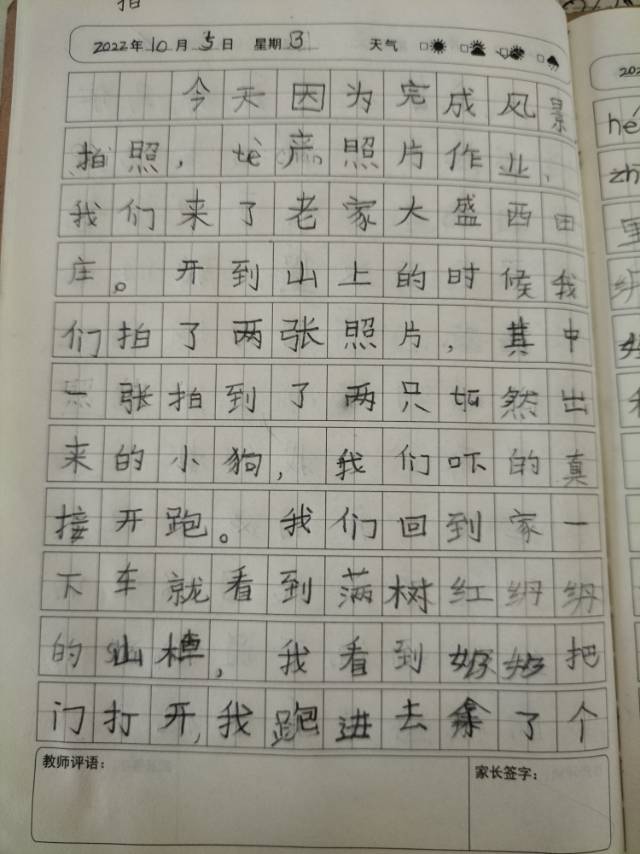 拍
2022年10月5日 星期3 天气
今天因为完成风景
拍照，tè产照片作业，
我们来了老家大盛西田
庄。开到山上的时候我
们拍了两张照片，其中
一张拍到了两只如然出
来的小狗，我们吓的真
接开跑。我们回到家一
下车就看到满树红
的山楂，我看到奶奶把
门打开，我跑进去拿了个
教师评语：
家长签字：
202
hé
zh
里